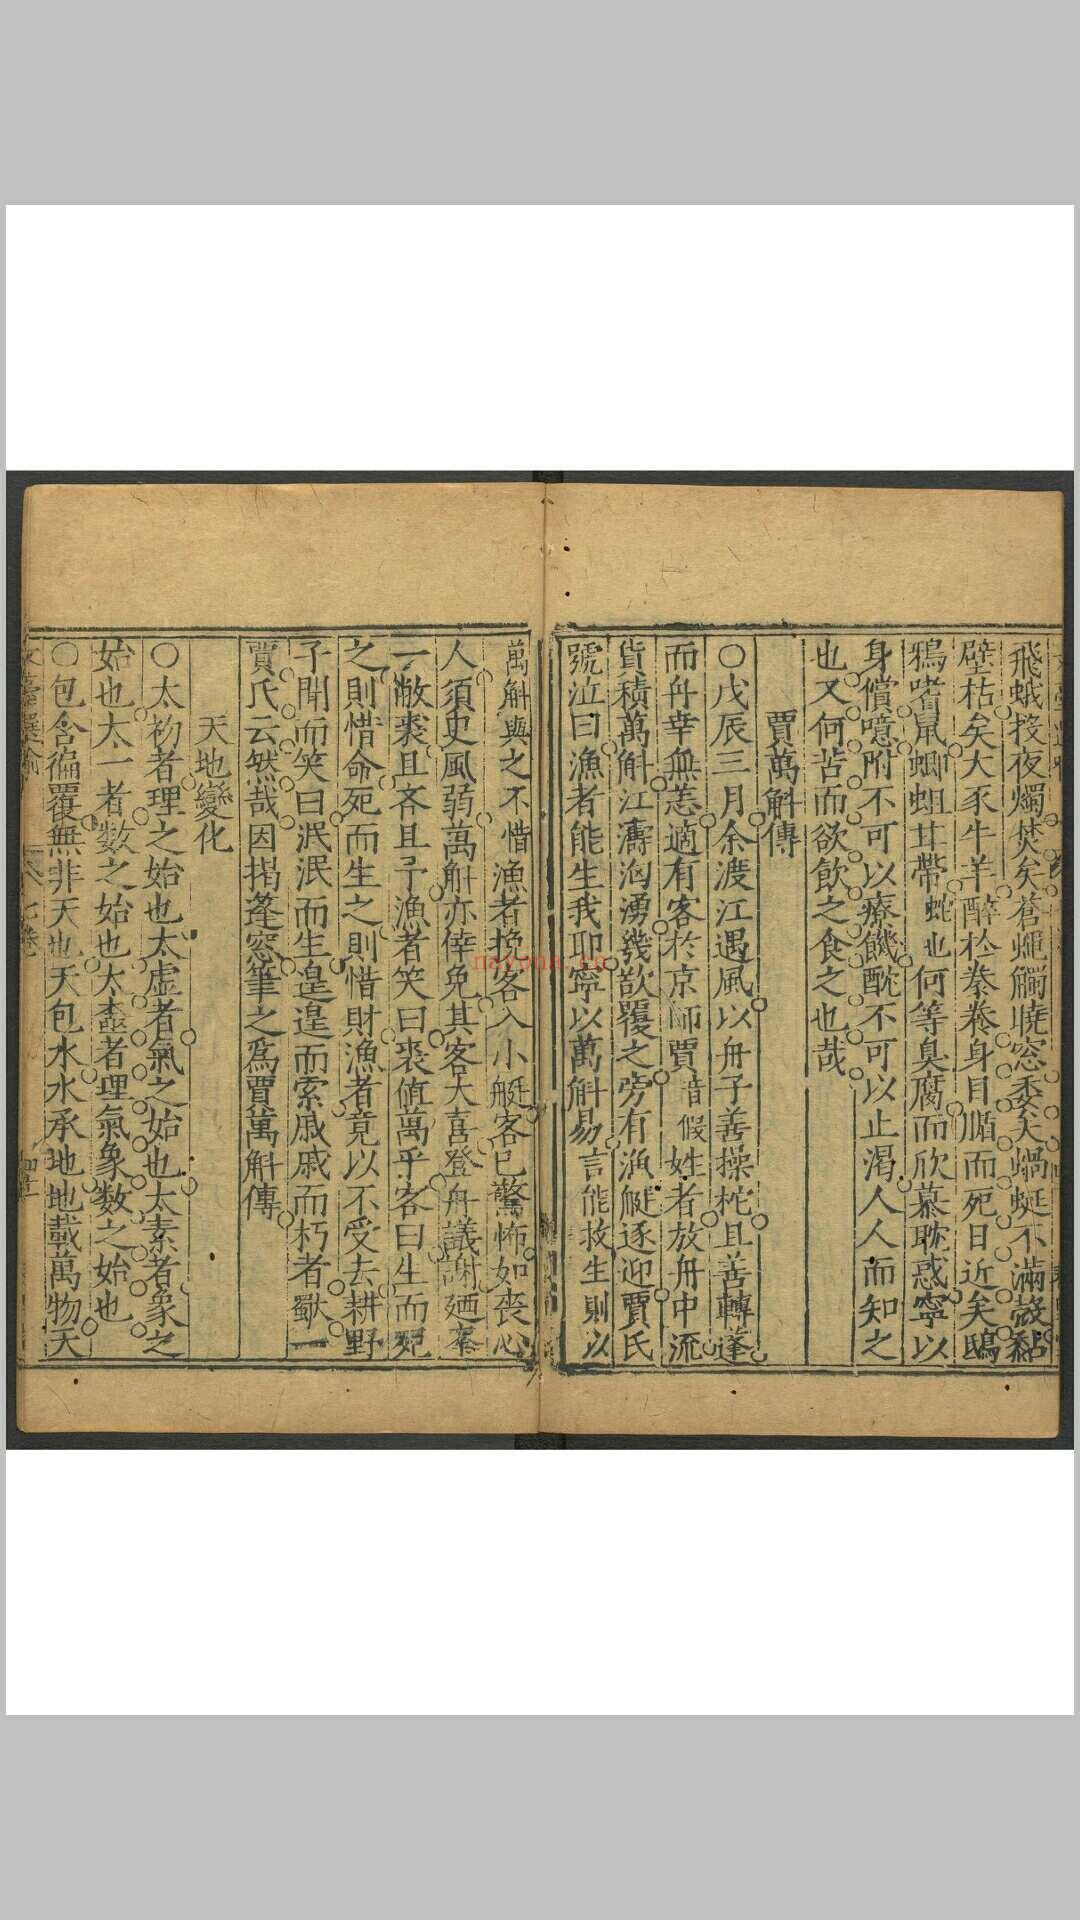 飛蛾投夜燭焚矣蒼蠅觸曉窓委矣蝸蜒不滿殼黏
壁枯矣大豕牛羊醉於豢養身目腯而死日近矣鴟
鴉嗜鼠蝍蛆甘帶蛇也何等臭腐而欣慕耽惑寧以
身償噫附不可以療饑酖不可以止渴人人而知之
也又何苦而欲飲之食之也哉
賈萬斛傳
○戊辰三月余渡江遇風以舟子善操柁且善轉蓬
而舟幸無恙適有客於京師賈音假姓者放舟中流
貨積萬斛江濤洶湧幾欲覆之旁有漁艇逐迎賈氏
號泣曰漁者能生我耶寧以萬斛易言能救生則以
萬斛與之不惜漁者挽客入小艇客已驚怖如喪心
人須史風弱萬斛亦倖免其客大喜登舟議謝廼搴
一敝裘且吝且予漁者笑曰裘值萬乎客曰生而死
之則惜命死而生之則惜財漁者竟以不受去耕野
子聞而笑曰泯泯而生遑遑而索戚戚而朽者獸一
賈氏云然哉因揭蓬窓筆之為賈萬斛傳
天地變化
○太初者理之始也太虛者氣之始也太素者象之
始也太一者數之始也太極者理氣象數之始也
○包含徧覆無非天也天包水水承地地載萬物天
nayona.cn